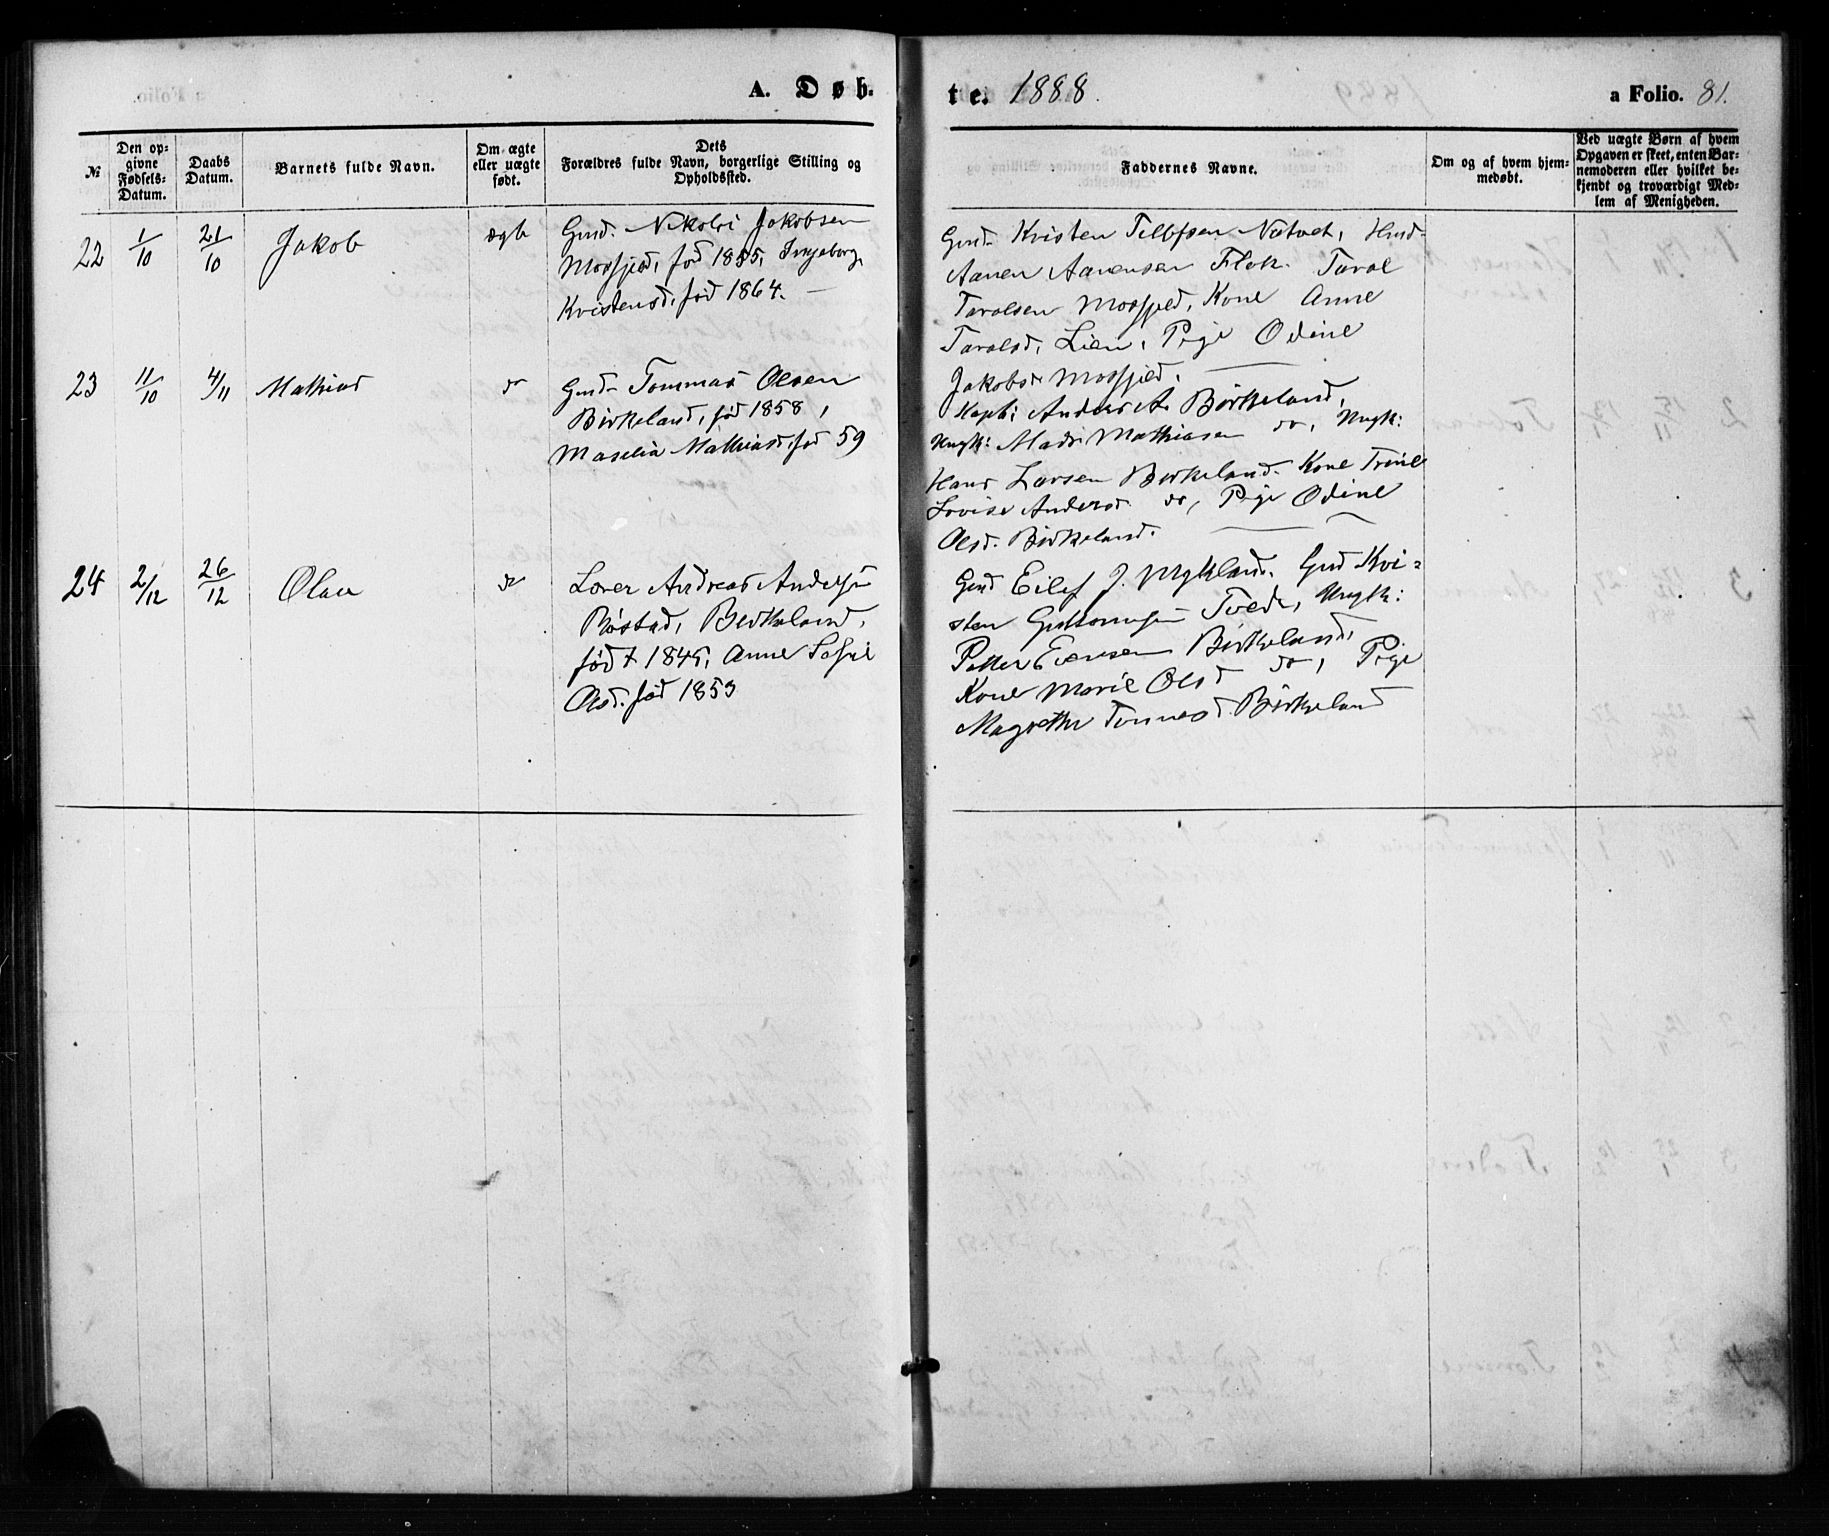 A. Døb-
te. 1888. a Folio. 81.
№
Den op-
givne
Fødsels-
Datum.
Daabs
Datum.
Barnets fulde Navn.
Om ægte
eller uægte
født.
Dets
Forældres fulde Navn, borgerlige Stilling og
Opholdssted.
Faddernes Navne.
Om og af hvem hjem-
medøbt.
Ved uægte Børn af hvem
Opgaven er skeet, enten Bar-
nemoderen eller hvilket be-
kjendt og troværdigt Med-
lem af Menigheden.
22 1/10 21/10 Jakob ægte
Gmd. Nikolai Jakobsen
Mosfjeld, fød 1855, Ingeborg
Kristensd. fød 1864.
Gmd. Kristen Tellefsen Natvet, Husd.
Aanen Aanensen Flok. Tarol
Tarolsen Mosfjeld, Kone Anne
Tarolsd. Lien, Pige Odine
Jakobsd. Mosfjeld.
23 11/10 4/11 Mathias do
Gmd. Tommas Olsen
Birkeland, fød 1858,
Maselia Mathiasd. fød 59
Kapt: Anders A. Birkeland,
Ungk: Mads Mathiasen do, Ungk:
Hans Larsen Birkeland. Kone Trine
Lovise Andersd. do, Pige Odine
Olsd. Birkeland.
24 2/12 26/12 Olav do
Lærer Andreas Andersen
Røstad, Birkeland,
født 1845, Anne Sofie
Olsd. fød 1853
Gmd Eilef J. Mykland. Gmd Kri-
sten Tvede, Ungk:
Petter Evensen Birkeland,
Kone Marie Olsd do, Pige
Magrethe Tønnesd. Birkeland